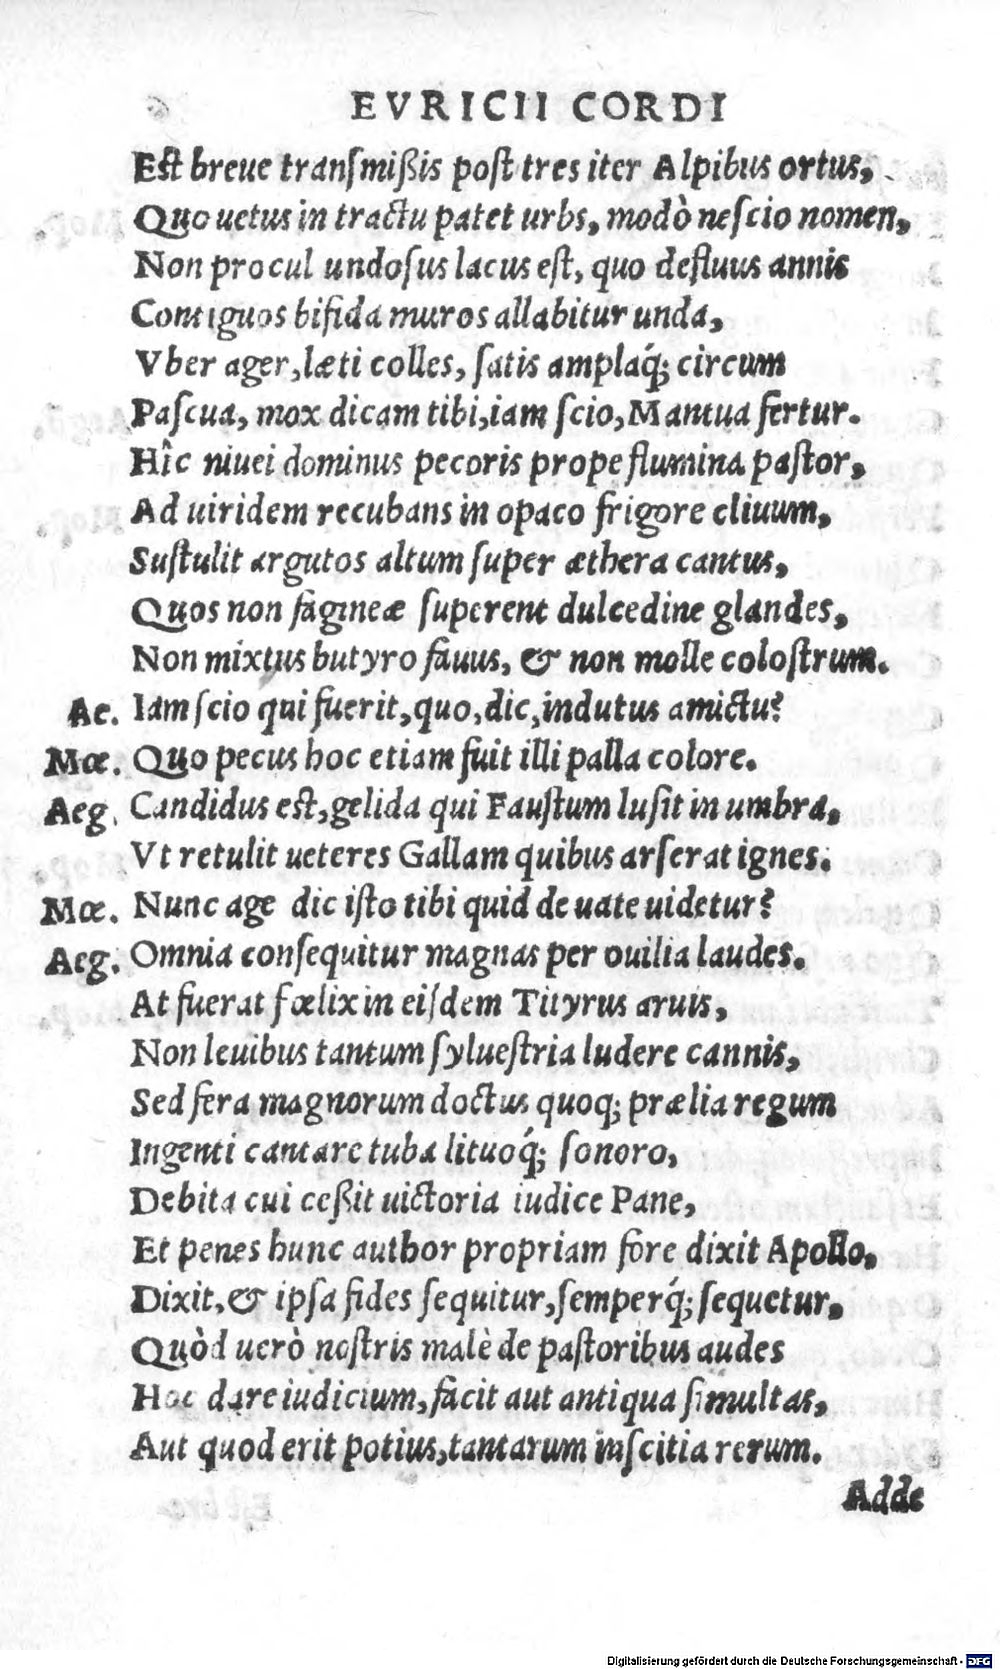 EVRICII CORDI
Eſt breue tranſmißis poſt tres iter Alpibus ortus,
Quo uetus in tractu patet urbs, modò neſcio nomen,
Non procul undoſus lacus eſt, quo defluus annis
Contiguos bifida muros allabitur unda,
Vber ager, læti colles, ſatis amplaq́; circum
Paſcua, mox dicam tibi, iam ſcio, Mantua fertur.
Hîc niuei dominus pecoris prope flumina paſtor,
Ad uiridem recubans in opaco frigore cliuum,
Suſtulit argutos altum ſuper æthera cantus,
Quos non fagineæ ſuperent dulcedine glandes,
Non mixtus butyro fauus, & non molle coloſtrum.
Ae. Iam ſcio qui fuerit, quo, dic, indutus amictu?
Mœ. Quo pecus hoc etiam fuit illi palla colore.
Aeg. Candidus eſt, gelida qui Fauſtum luſit in umbra,
Vt retulit ueteres Gallam quibus arſerat ignes.
Mœ. Nunc age dic iſto tibi quid de uate uidetur?
Aeg. Omnia conſequitur magnas per ouilia laudes.
At fuerat fœlix in eiſdem Tityrus aruis,
Non leuibus tantum ſylueſtria ludere cannis,
Sed fera magnorum doctus quoq; prælia regum
Ingenti cantare tuba lituoq́; ſonoro,
Debita cui ceßit uictoria iudice Pane,
Et penes hunc author propriam fore dixit Apollo,
Dixit, & ipſa fides ſequitur, ſemperq́; ſequetur,
Quòd uerò noſtris malè de paſtoribus audes
Hoc dare iudicium, facit aut antiqua ſimultas,
Aut quod erit potius, tantarum inſcitia rerum.
Adde
Digitalisierung gefördert durch die Deutsche Forschungsgemeinschaft - DFG